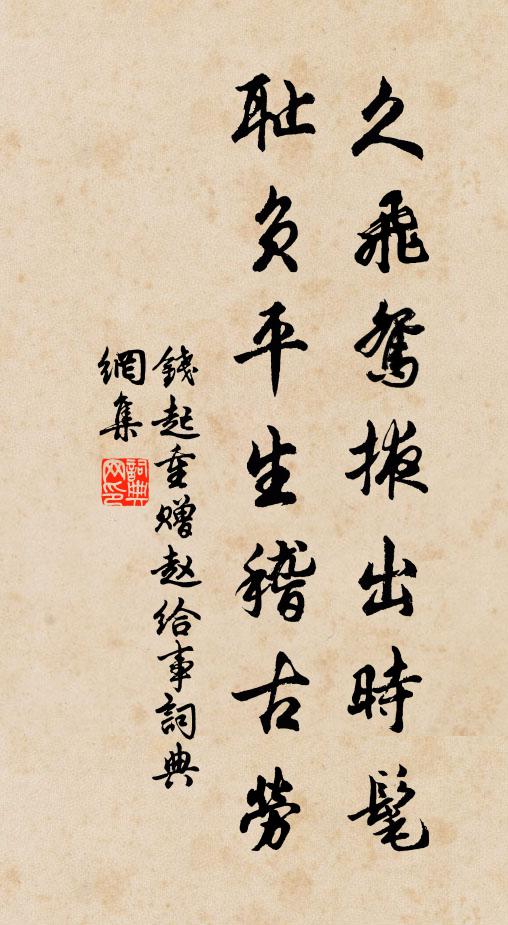 久飛鴛掖出時髦
耻負平生稽古勞
錢起重贈赵給事詞典
網集
詞典网印